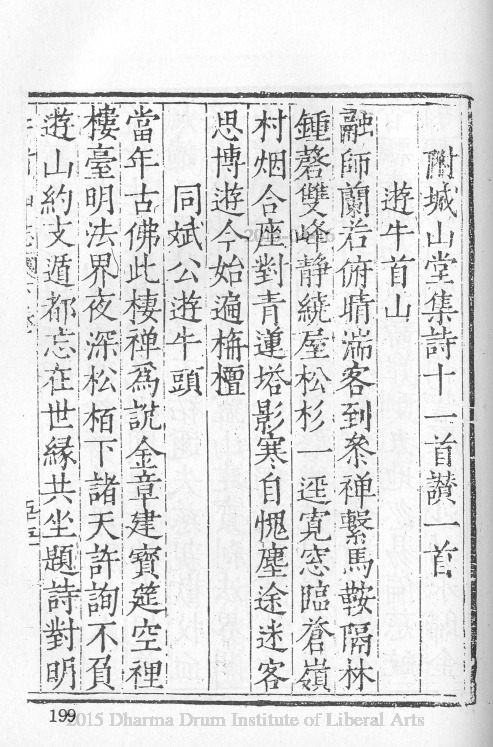 附堿山堂集詩十一首讃一首
遊牛首山
融師蘭若俯晴湍客到叅禅繫馬鞍隔林
鍾磬雙峰靜繞屋松杉一逕寛窓臨蒼嶺
村烟合座對青蓮塔影寒自愧塵途迷客
思博遊今始遍栴檀
同斌公遊牛頭
當年古佛此棲禪為說金章建寳筵空裡
樓臺明法界夜深松栢下諸天許詢不負
遊山約支遁都忘在世縁共坐題詩對明
199
2015 Dharma Drum Institute of Liberal Arts